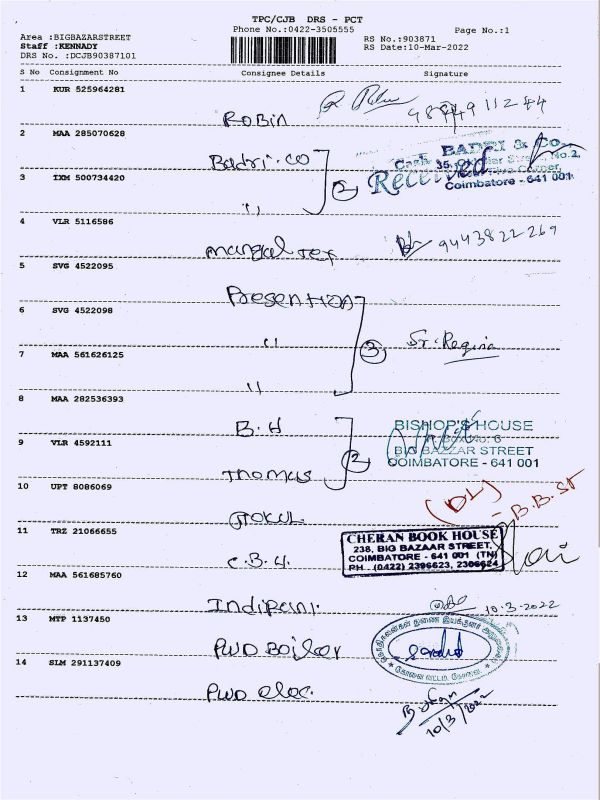 TPC/CJB DRS - PCT
Phone No.:0422-3505555
Page No.:1
Area :BIGBAZARSTREET
Staff :KENNADY
DRS No. :DCJB90387101
RS No.:903871
RS Date:10-Mar-2022
S No Consignment No Consignee Details Signature
1 KUR 525964281
Robin
2 MAA 285070628
Badri.co
3 IXM 500734420
" 2
Received
BADRI & Co.
Coimbatore - 641 001
4 VLR 5116586
mangal Tex 9443822269
5 SVG 4522095
Presention
6 SVG 4522098
" 3 Sr. Regina
7 MAA 561626125
"
8 MAA 282536393
B.H
9 VLR 4592111
Thomas 2
BISHOP'S HOUSE
BIG BAZZAR STREET
COIMBATORE - 641 001
10 UPT 8086069
Gokul
(DL) - B.B.St
11 TRZ 21066655
C.B.H.
CHERAN BOOK HOUSE
238, BIG BAZAAR STREET,
COIMBATORE - 641 001 (TN)
PH. (0422) 2396623, 2306624
12 MAA 561685760
10.3.2022
13 MTP 1137450
PWD Boiler
14 SLM 291137409
PWD elec.
10/3/2022